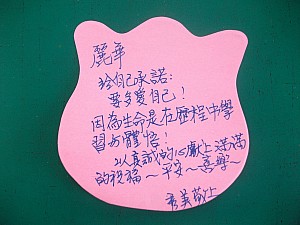 麗華
給自己承諾:
要多愛自己!
因為生命是在歷程中學
習與體悟!
以真誠的心獻上滿滿
的祝福~平安~喜樂~
秀美敬上